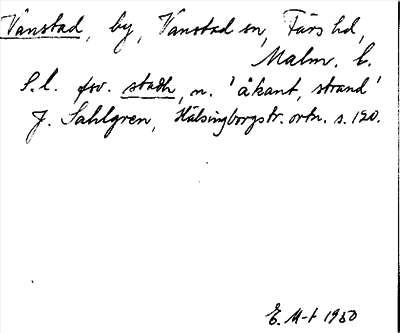 Vanstad, by, Vanstad sn, Färs hd,
Malm. l.
S.l. fsv. stadh, n. 'åkant, strand'
J. Sahlgren, Hälsingborgstr. ortn. s. 120.
E. M-t 1950